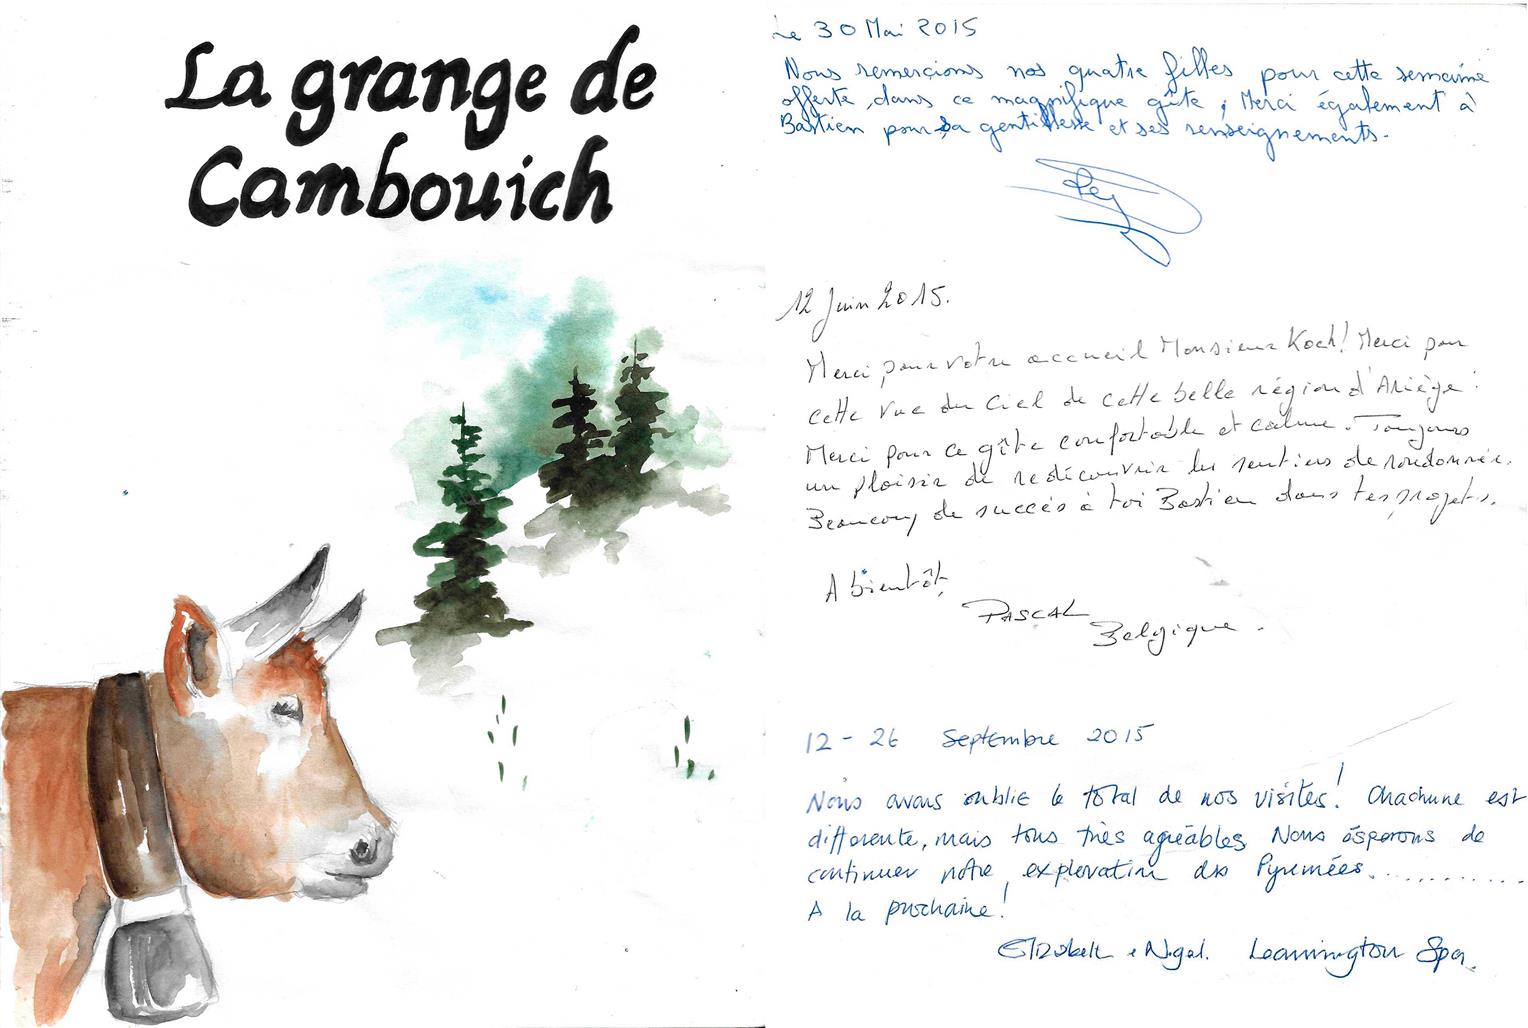 La grange de
Cambouich
Le 30 Mai 2015
Nous remercions nos quatre filles pour cette semaine
offerte, dans ce magnifique gîte, Merci également à
Bastien pour sa gentillesse et ses renseignements.
12 Juin 2015.
Merci pour votre accueil Monsieur Koch! Merci pour
cette vue du Ciel de cette belle région d'Ariège!
Merci pour ce gîte confortable et calme. Toujours
un plaisir de redécouvrir les sentiers de randonnée.
Beaucoup de succès à toi Bastien dans tes projets.
A bientôt,
PASCAL
Belgique.
12-26 Septembre 2015
Nous avons oublie le total de nos visites! Chachune est
differente, mais tous très agréables. Nous ésperons de
continuer notre exploration des Pyrenées..............
A la prochaine!
Elizabeth & Nigel. Leamington Spa.